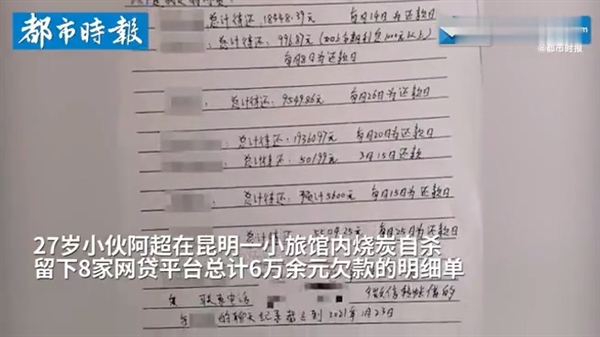 都市时报
总计待还:18448.39元 每月14日为还款日
@都市时报
总计待还:
每月8日为还款日
总计待还:9549.86元 每月26日为还款日
总计待还:19360.97元 每月20日为还款日
总计待还:501.99元 3月15日还款
总计待还:预计5600元 每月15日为还款日
总计待还: 每月25日为还款日
27岁小伙阿超在昆明一小旅馆内烧炭自杀
留下8家网贷平台总计6万余元欠款的明细单
联系电话
的聊天记录截止到2021年1月23日